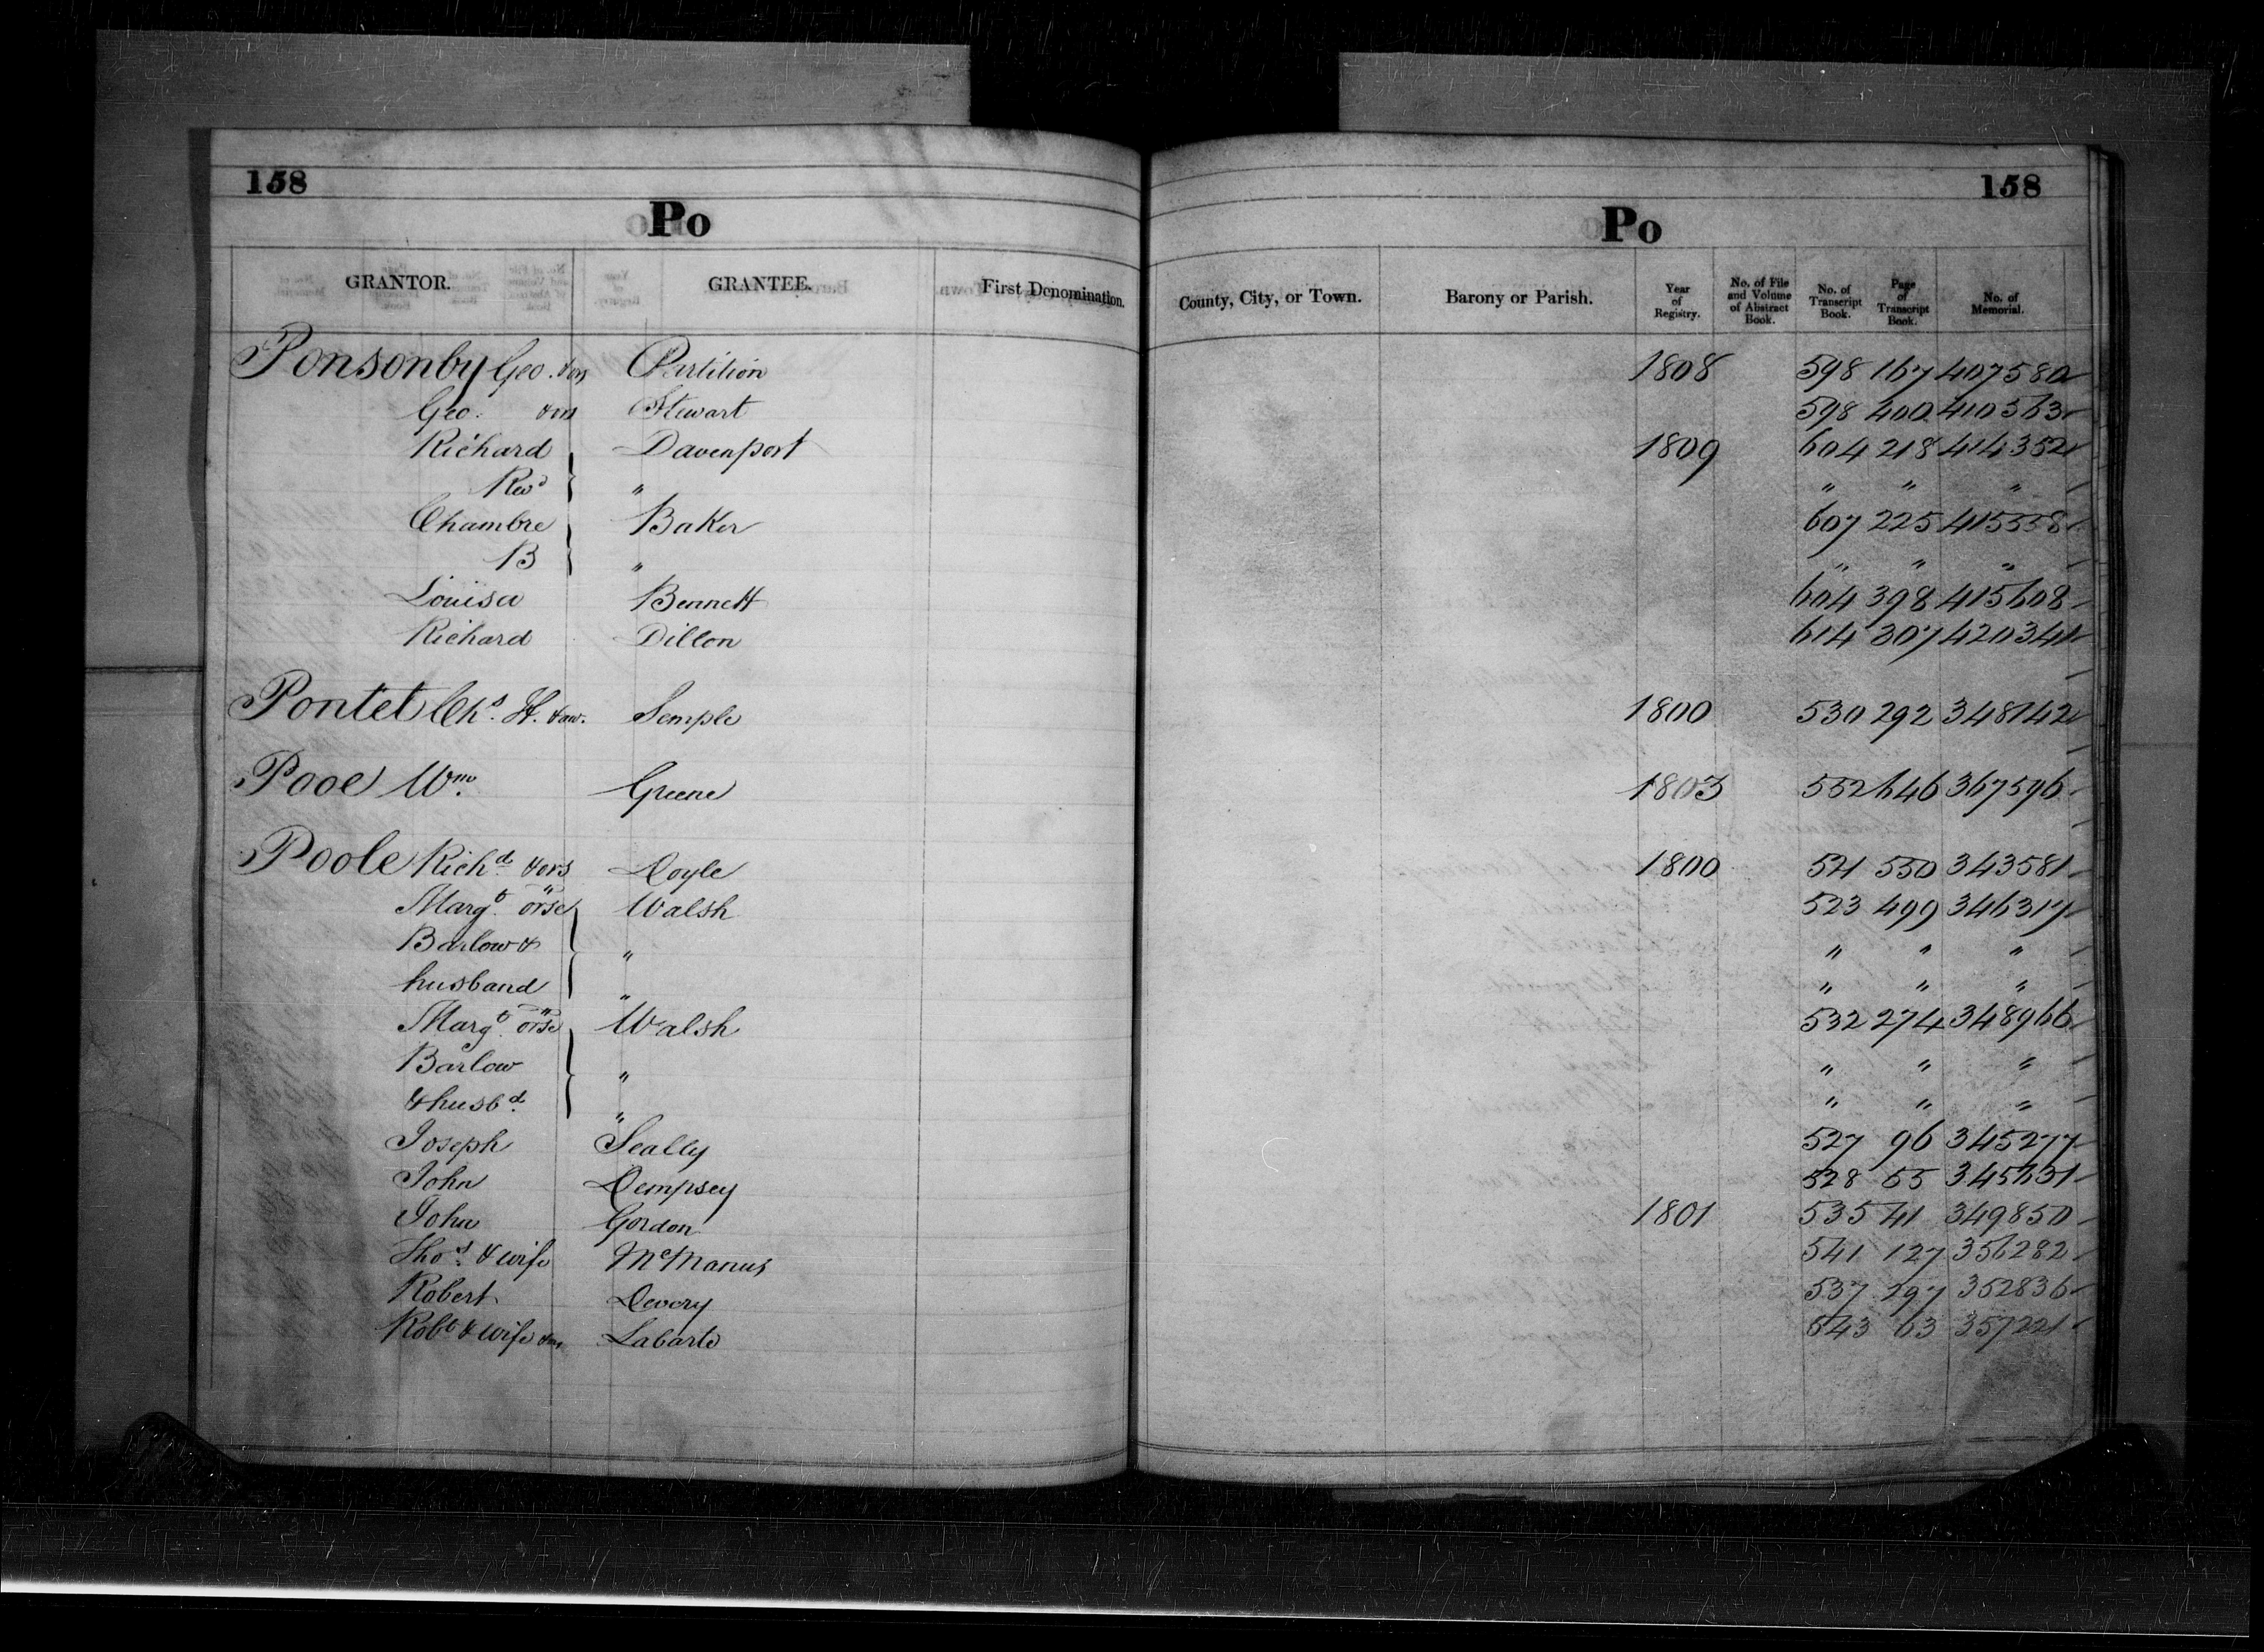 158 158
Po Po
GRANTOR. GRANTEE. First Denomination. County, City, or Town. Barony or Parish. Year of Registry. No. of File and Volume of Abstract Book. No. of Transcript Book. Page of Transcript Book. No. of Memorial.
Ponsonby Geo. &ors Partition 1808 598 167 407580
Geo. &ors Stewart 598 400 410363
Richard Davenport 1809 604 218 414352
Revd " " " "
Chambre Baker 607 225 415558
B " " " "
Louisa Bennett 604 398 415608
Richard Dillon 614 307 420341
Pontet Chs. H. &aw. Semple 1800 530 292 348142
Pooe Wm. Greene 1803 552 646 367596
Poole Richd. &ors Doyle 1800 521 550 343581
Margt. orse Walsh 523 499 346317
Barlow & " " " "
husband " " " "
Margt. orse Walsh 532 274 348966
Barlow " " " "
& husbd. " " " "
Joseph Seally 527 96 345277
John Dempsey 528 55 345631
John Gordon 1801 535 41 349850
Thos. & wife McManus 541 127 356282
Robert Devory 537 297 352836
Robt & wife &ors Labarte 543 63 357221